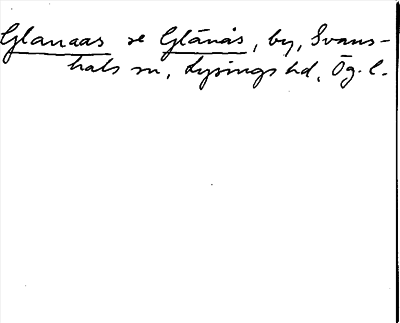 Glanaas se Glänås, by, Svans-
hals sn, Lysings hd, Ög. l.